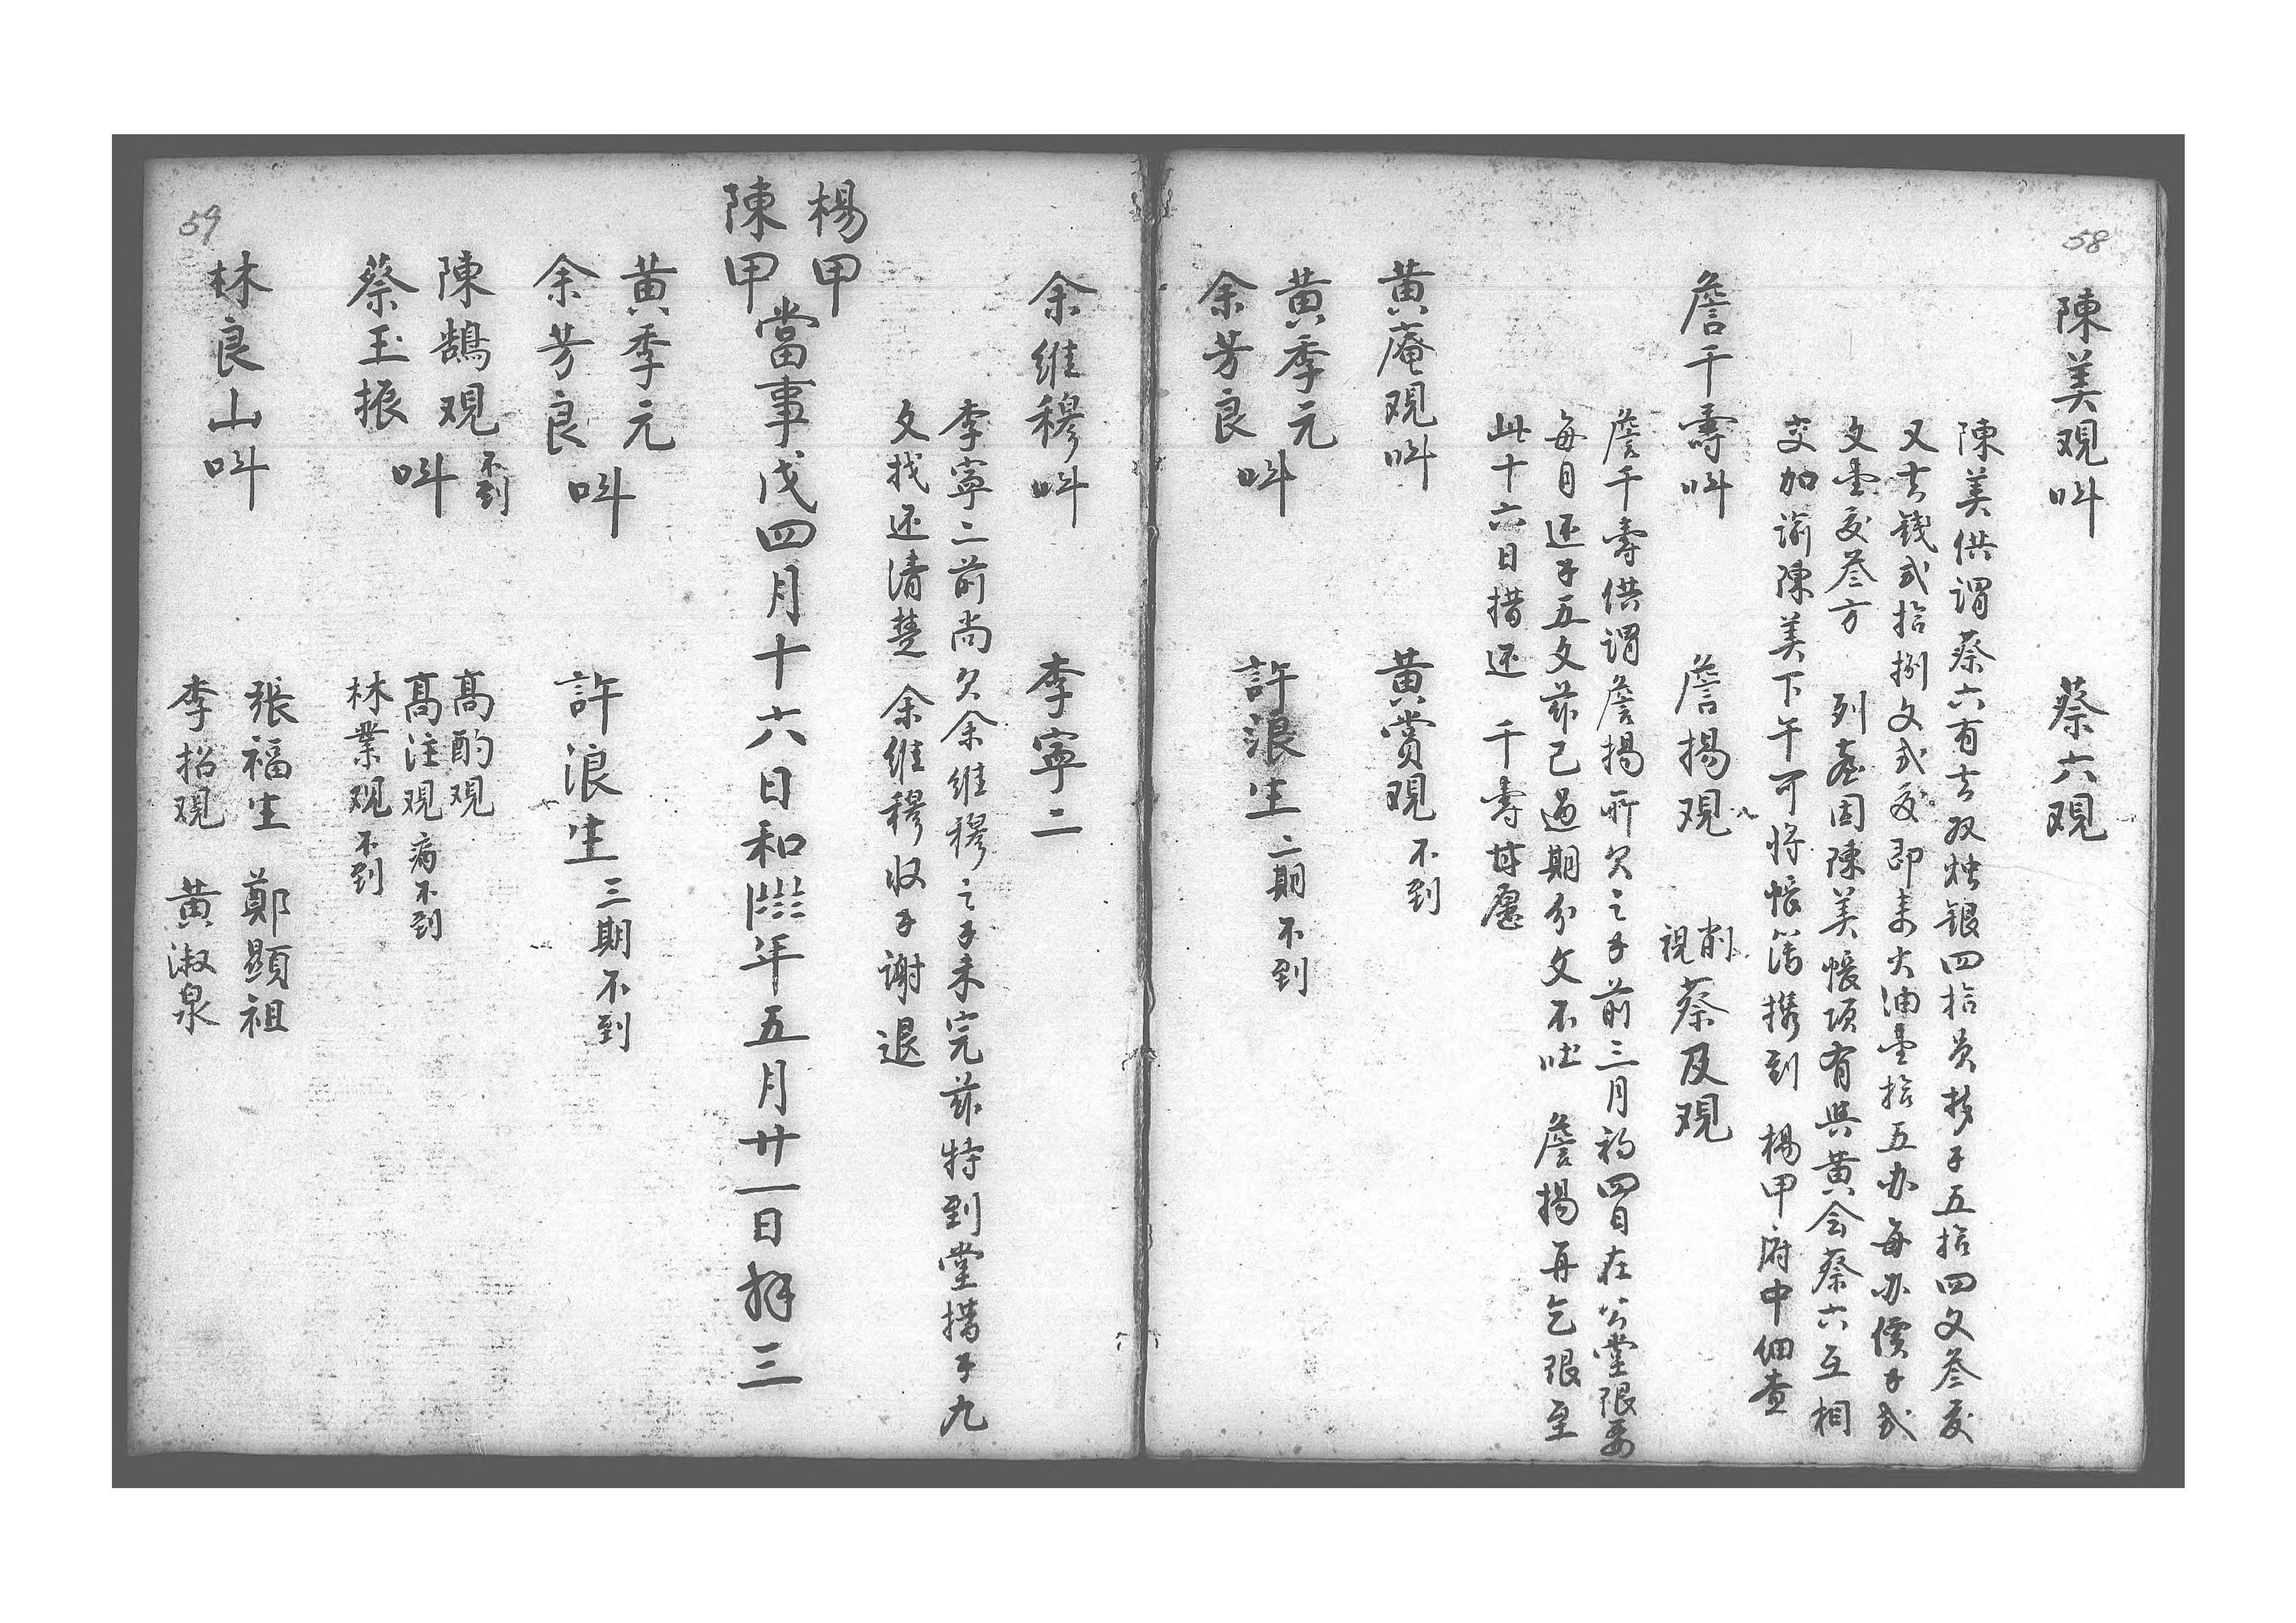 58
陳美观呌 蔡六观
陳美供謂蔡六有去双烛银四拾員抄子五拾四文叁鈫
又去錢弍拾捌文弍鈫即来火油壹拾五办每办價子弍
文壹鈫叁方 列臺因陳美帳項有與黄会蔡六互相
交加諭陳美下午可将帳簿携到 楊甲府中细查
詹千壽呌 詹揚观 削視 蔡及观
詹千壽供謂詹揚所欠之子前三月初四日在公堂限要
每月还子五文兹已過期分文不吐 詹揚再乞限至
此十六日措还 千壽甘愿
黄庵观呌 黄賞观 不到
黄季元
余芳良 呌 許浪生 二期不到
余維穆呌 李寧二
李寧二前尚欠余維穆之子未完兹特到堂措子九
文找还清楚 余維穆收子謝退
楊甲
陳甲 當事戊四月十六日和1833年五月廿一日拜三
黄季元
余芳良 呌 許浪生 三期不到
陳鵠观 不到
蔡玉振 呌
高酌观
高注观 病不到
林業观 不到
林良山呌
張福生 鄭顯祖
李招观 黄淑泉
59